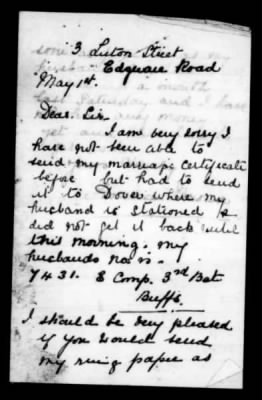 3, Luton Street
Edgware Road
May 1st.
Dear Sir
I am very sorry I
have not been able to
send my marriage certificate
before but had to send
it to Dover where my
husband is stationed &
did not get it back until
this morning. my
husbands no is.
7431. E Comp. 3rd Bat
Buffs.
I should be very pleased
if you would send
my ring paper as